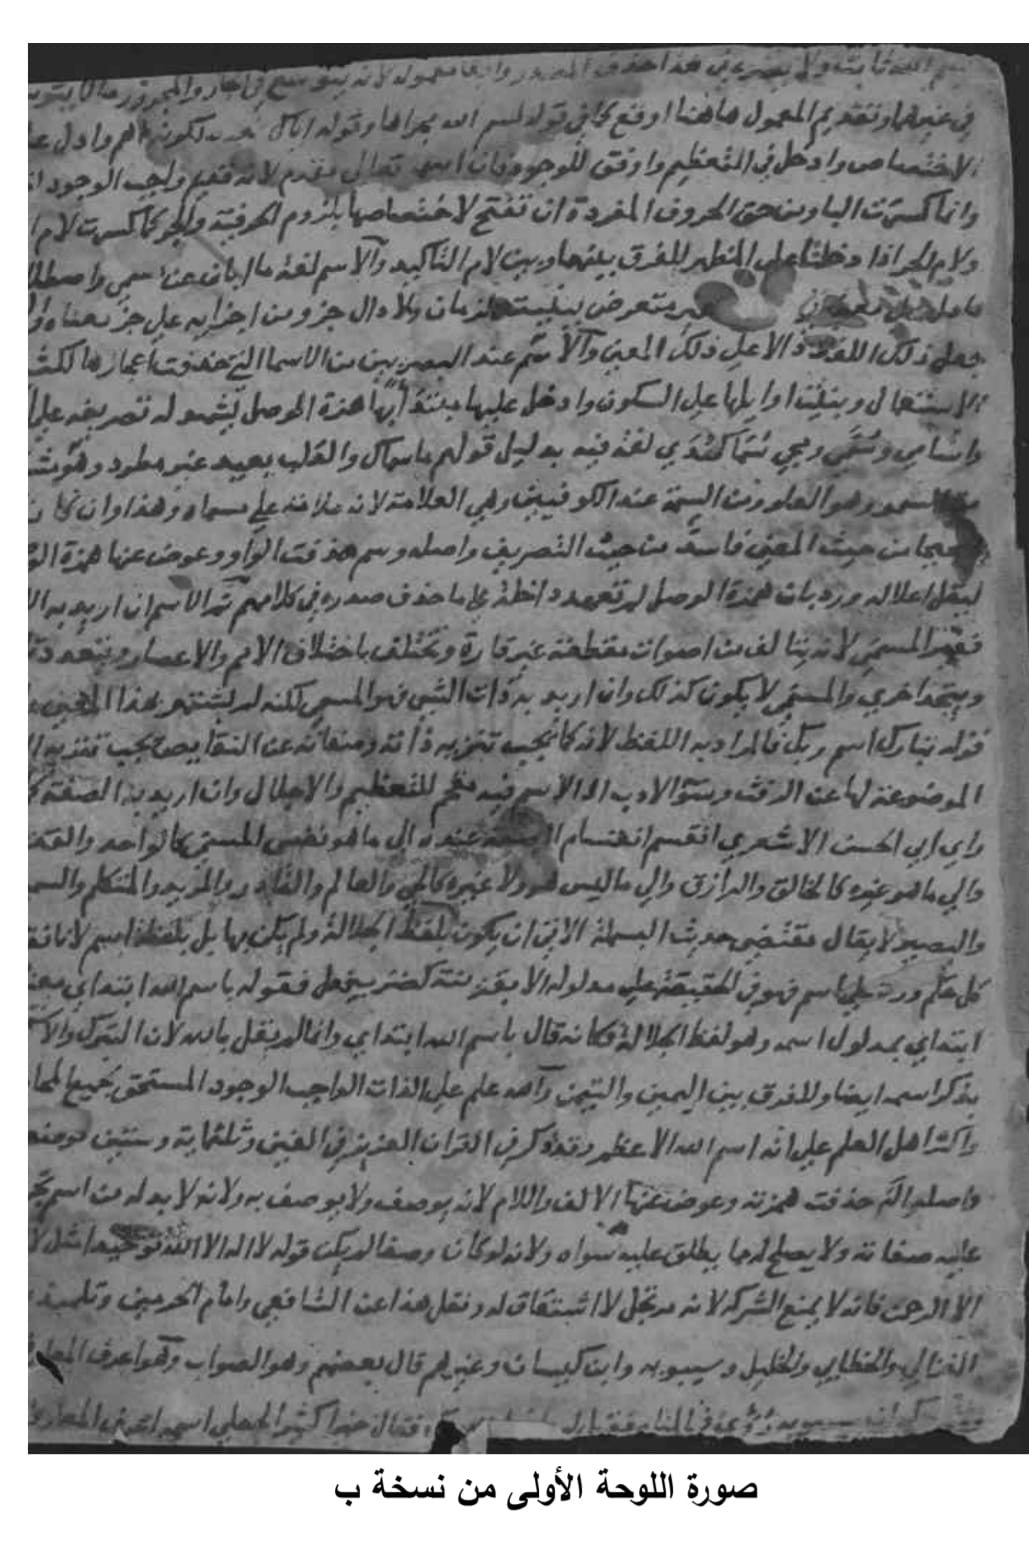 بسم الله ثابتة ولا يضر في هذا حذف المصدر وابقا معموله لانه يتوسع في الجار والمجرور ما لا يتوسع
في غيرهما وتقديم المعمول هاهنا اوقع كما في قوله بسم الله مجراها وقوله اياك نعبد لكونه اهم وادل على
الاختصاص وادخل في التعظيم واوفق للوجود فان اسمه تعالى مقدم لانه قديم واجب الوجود
وانما كسرت الباومن حق الحروف المفردة ان تفتح لاختصاصها بلزوم الحرفية والجر كما كسرت لام
ولام الجر اذا دخلتا على المظهر للفرق بينهما وبين لام التاكيد والاسم لغة ما ابان عن مسمى واصطلاحا
ما دل على معنى في متعرض ببنيته لزمان ولا دال جزو من اجزايه على جز معناه
جعل ذلك اللفظ دالا على ذلك المعنى والاسم عند البصريين من الاسما التي حذفت اعجازها لكثرة
الاستعمال وبنيت اوايلها على السكون وادخل عليها مبتدأ بها همزة الوصل يشهد له تصريفه على
واسامي وسمي ومجي سما كهدي لغة فيه بدليل قولهم ما سماك والقلب بعيد غير مطرد
السمو وهو العلو ومن السمة عند الكوفيين وهي العلامة لانه علامة على مسماه وهذا وان كان
صحيحا من حيث المعنى فاسد من حيث التصريف واصله وسم حذفت الواو وعوض عنها همزة
ليقل اعلاله ورد بان همزة الوصل لم تعهد داخلة على ما حذف صدره في كلامهم ثم الاسم ان اريد به
فغير المسمى لانه يتالف من اصوات مقطعة غير قارة ويختلف باختلاف الامم والاعصار ويتعدد تارة
ويتحد اخرى والمسمى لا يكون كذلك وان اريد به ذات الشي فهو المسمى لكنه لم يشتهر بهذا المعنى
قوله تبارك اسم ربك فالمراد به اللفظ لانه كما يجب تنزيه ذاته وصفاته عن النقايص يجب تنزيه
الموضوعة لها عن الرفث وسوء الادب او الاسم فيه مقحم للتعظيم والاجلال وان اريد به الصفة كما
راي ابي الحسن الاشعري انقسم انقسام الصفة عنده الى ما هو نفس المسمى كالواحد والقديم
والى ما هو غيره كالخالق والرازق والى ما ليس هو ولا غيره كالحي والعالم والقادر والمريد والمتكلم
والبصير لا يقال مقتضى حديث البسملة الاتي ان يكون بلفظ الجلالة ولم يكن بها بل بلفظ اسم لانا
كل حكم ورد على اسم فهو في الحقيقة على مدلوله الا بقرينة كضرب فعل فقوله باسم الله ابتداي
ابتداي بمدلول اسمه وهو لفظ الجلالة فكانه قال باسم الله ابتداي وانما لم يقل بالله لان التبرك
بذكر اسمه ايضا وللفرق بين اليمين والتيمن والله علم على الذات الواجب الوجود المستحق لجميع
واكثر اهل العلم على انه اسم الله الاعظم وقد ذكر في القران العزيز في الفين وثلثماية وستين موضعا
واصله اله حذفت همزته وعوض عنها الالف واللام لانه يوصف ولا يوصف به ولانه لا بد له من اسم
عليه صفاته ولا يصلح له مما يطلق عليه سواه ولانه لو كان وصفا لم يكن قوله لا اله الا الله توحيدا مثل
الا الرحمن فانه لا يمنع الشركة لانه مرتجل لا اشتقاق له ونقل هذا عن الشافعي وامام الحرمين وتلميذه
الغزالي والخطابي والخليل وسيبويه وابن كيسان وغيرهم قال بعضهم وهو الصواب وهو اعرف
سيبويه في المنام فقال خيرا كثيرا لجعلي اسمه اعرف المعارف
صورة اللوحة الأولى من نسخة ب